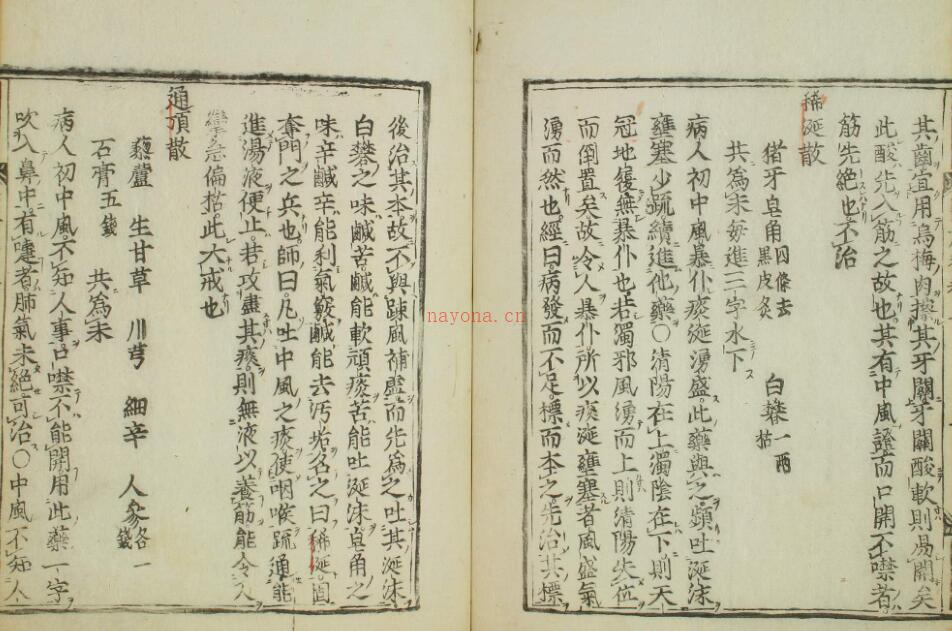 其齒宜用烏梅肉擦其牙關牙關酸軟則易開矣
此酸先入筋之故也其有中風證而口開不噤者
筋先絕也不治
稀涎散
猪牙皂角四條去黑皮炙 白礬一兩枯
共為末每進三字水下
病人初中風暴仆痰涎湧盛此藥與之頻吐涎沫
壅塞少疏續進他藥〇清陽在上濁陰在下則天
冠地履無暴仆也若濁邪風湧而上則清陽失位
而倒置矣故令人暴仆所以痰涎壅塞者風盛氣
湧而然也經曰病發而不足標而本之先治其標
後治其本故不與疎風補虛而先為之吐其涎沫
白礬之味鹹苦鹹能軟頑痰苦能吐涎沫皂角之
味辛鹹辛能利氣竅鹹能去汚垢名之曰稀涎固
奪門之兵也師曰凡吐中風之痰使咽喉疏通能
進湯液便止若攻盡其痰則無液以養筋能令人
攣急偏枯此大戒也
通頂散
藜蘆 生甘草 川芎 細辛 人參各一錢
石膏五錢 共為末
病人初中風不知人事口噤不能開用此藥一字
吹入鼻中有嚏者肺氣未絕可治〇中風不知人
nayona.cn